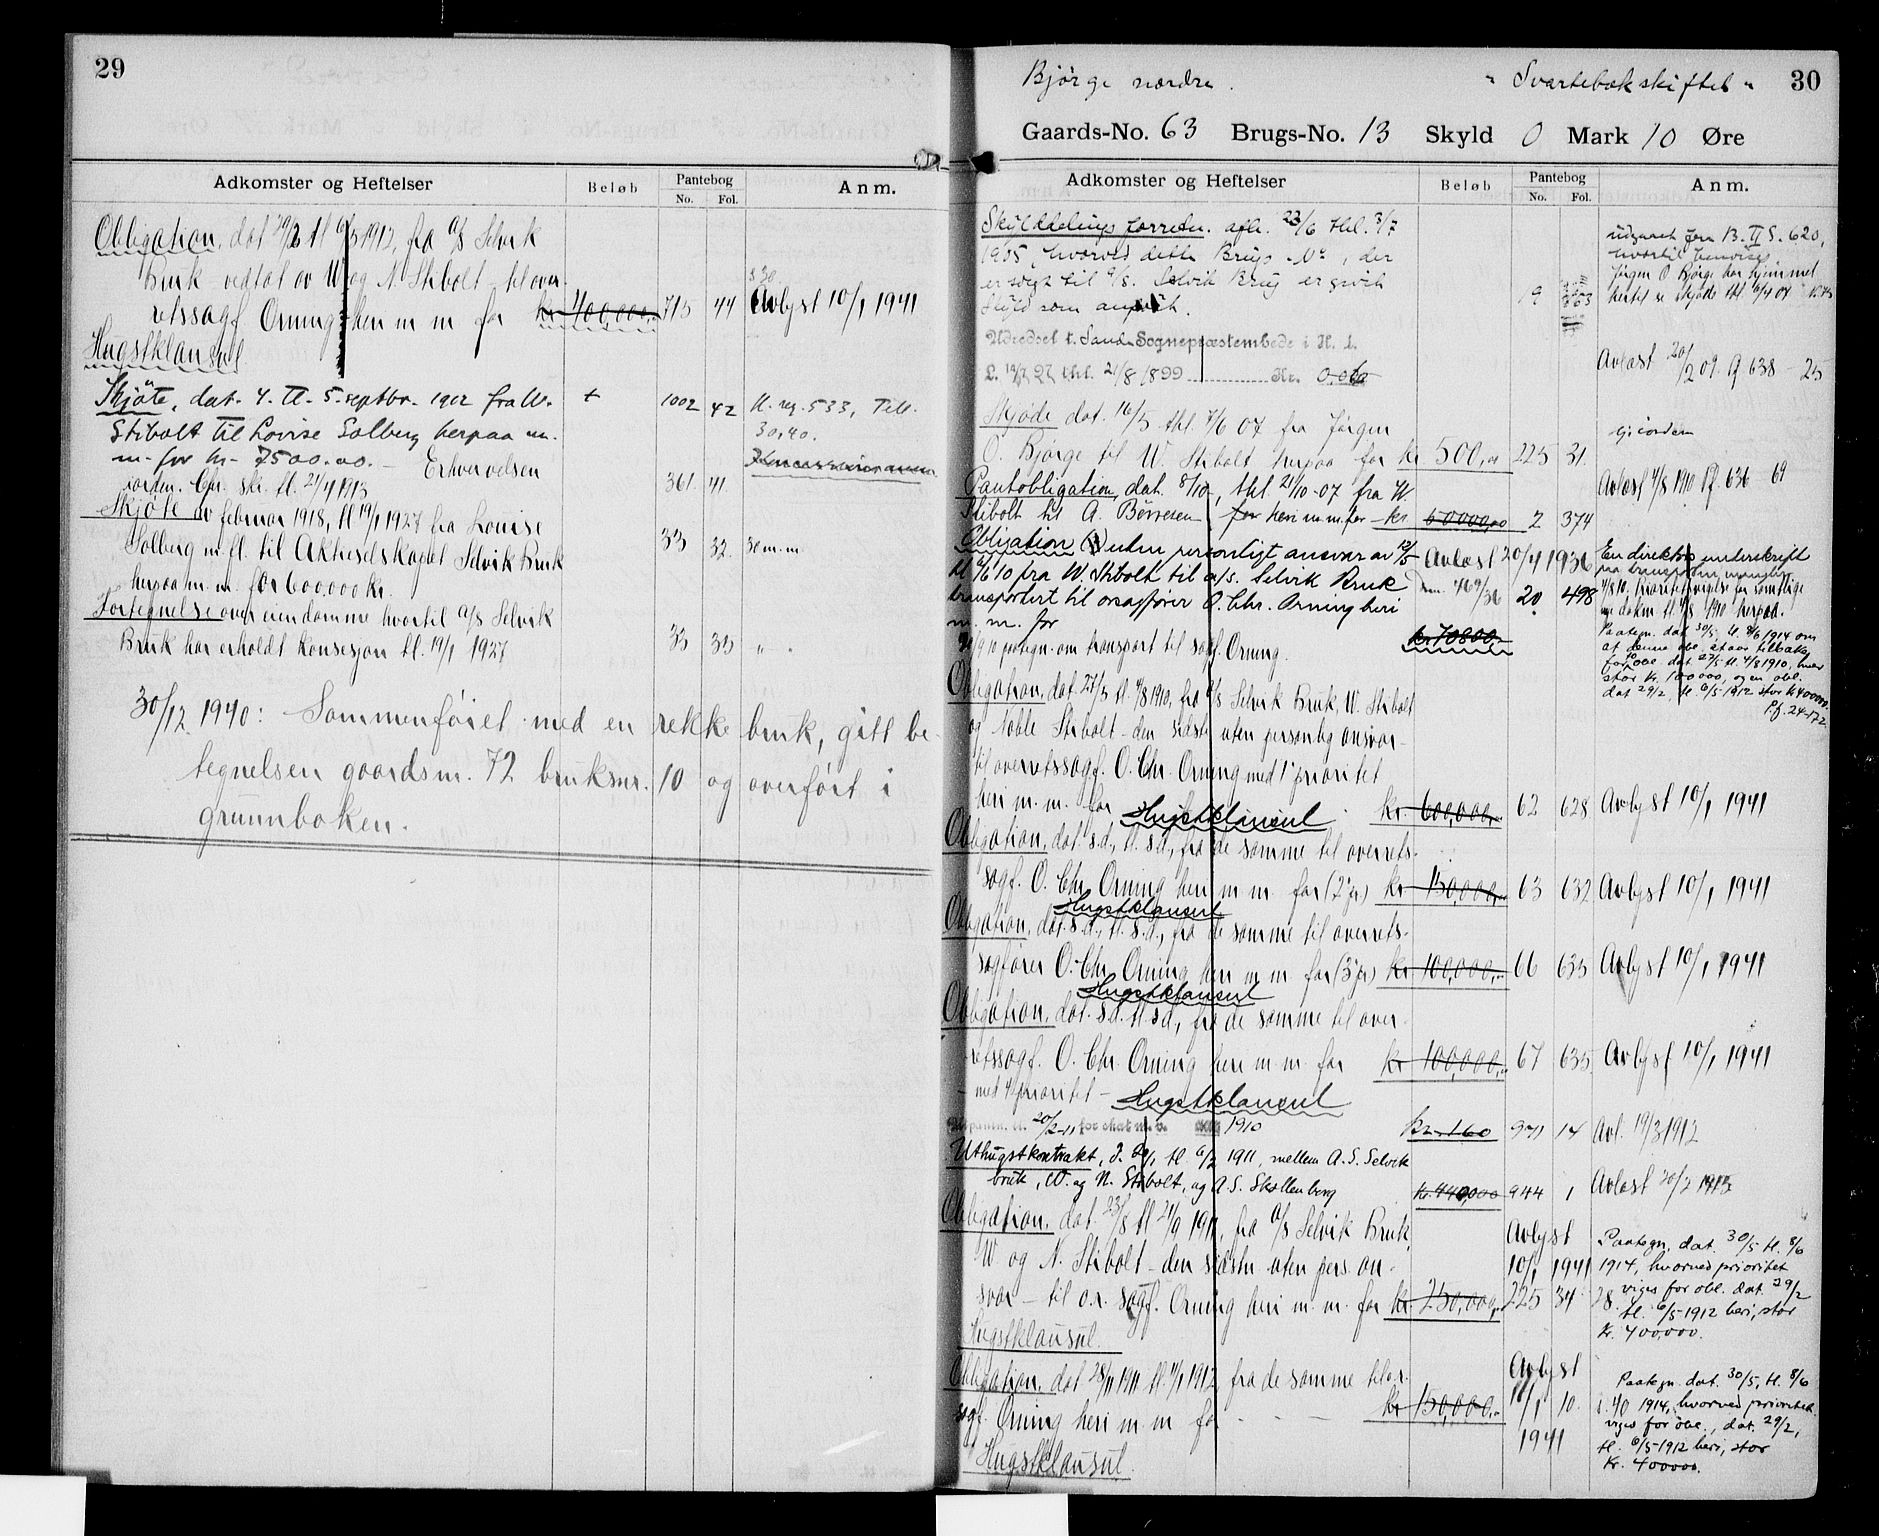 29
Adkomster og Heftelser Beløb Pantebog No. Fol. Anm.
Obligation, dat 29/2 tl 6/5 1912, fra A/S Selvik
Bruk vedtat av W og N. Stibolt til over-
retssagf. Orning heri m m for kr 400,000,- 715 44 Avlyst 10/1 1941
Hugstklausul
Skjöte, dat. 4. tl. 5. septbr. 1912 fra W. 1002 42 tl. reg. 533, Till.
Stibolt til Lovise Solberg herpaa m. 30,40.
m. for kr. 7500.00. Erhvervelsen
konsesjonen
361. 41.
Skjøte av februar 1918, tl 19/1 1927 fra Louise
Solberg m. fl. til Aktieselskapet Selvik Bruk 33 32. 30 m.m
herpaa m. m. for 600.000 kr.
Fortegnelse over eiendomme hvortil A/S Selvik
Bruk har erholdt konsesjon tl. 19/1 1927 33 35 " "
30/12 1940: Sammenføiet med en rekke bruk, gitt be-
tegnelsen gaardsnr. 72 bruksnr. 10 og overført i
grunnboken.
Bjørge nordre. " Svartebækskiftet " 30
Gaards-No. 63 Brugs-No. 13 Skyld 0 Mark 10 Øre
Adkomster og Heftelser Beløb Pantebog No. Fol. Anm.
Skylddelings forretn. afh. 23/6 thl. 3/7
1905, hvorved dette Brugs-No, der
er solgt til A/S. Selvik Brug er givet
Skyld som anført. 9
udgaaet fra B. II S. 620,
hvortil henvises
Jørgen O Bjørge har hjemmel
hertil se skjøde thl
Udredset t. Sande Sognepræstembede i H. t.
thl. 21/8 1899 Kr.
Avløst 20/2 09. 638 - 25
Skjøde dat. 16/5 thl. 4/6 07 fra Jørgen
O. Bjørge til W. Stibolt herpaa for kr 500,00 225 31
Pantobligation, dat. 8/10, thl 21/10-07 fra W.
Stibolt til A. Børresen for heri m.m. for kr 60000,00 2 374
Avløst 4/8 1910 Pf. 636 69
Obligation uden personligt ansvar av 12/5
tl 4/6 10 fra W. Stibolt til a/s. Selvik Bruk
transportert til orsagfører O. Chr. Orning heri
m. m. for kr 70800.-
Avløst 20/4 1936
20 498
En direktørs underskrift
paa transporten mangler.
4/8 10. Prioritetsvigelse for samtlige
herpaa.
Paategn. dat 30/5, tl. 8/6 1914 om
at denne obl. staar tilbake
for obl. dat. 27/5 tl. 4/8 1910, hver
stor kr. 100000, og en obl.
dat 29/2 tl. 6/5 1912 stor kr 400000.
Pf. 24-172
paategn. om transport til sagf. Orning.
Obligation, dat 27/5 tl. 4/8 1910, fra A/S Selvik Bruk, W. Stibolt
og Noble Stibolt - den sidste uten personlig ansvar -
til overretssagf. O. Chr. Orning med 1' prioritet
heri m. m. for Hugstklausul kr. 600,000,- 62 628 Avlyst 10/1 1941
Obligation, dat s.d., tl. s.d., fra de samme til overrets-
sagf. O. Chr Orning heri m m for (2' pr) kr 150,000,- 63 632 Avlyst 10/1 1941
Hugstklausul
Obligation, dat. s.d., tl. s.d., fra de samme til overrets-
sagfører O. Chr. Orning heri m m for (3' pr) kr 100,000,- 66 635 Avlyst 10/1 1941
Hugstklausul
Obligation, dat. s.d. tl. s.d., fra de samme til over-
retssagf. O. Chr. Orning heri m. m. for kr 100,000,- 67 635 Avlyst 10/1 1941
- med 4' prioritet - Hugstklausul
20/2-11 for skat 1910 Kr. 160 941 14 Avl. 19/3 1912
Uthugstkontrakt, d. tl. 6/2 1911, mellem A. S. Selvik
bruk, W. og N. Stibolt, og A. S. Skollenborg kr. 440,000 944 1 Avløst 20/2 1913
Obligation, dat. 23/8 tl 21/9 1911, fra A/S Selvik Bruk,
W og N. Stibolt - den sidste uten pers. an-
svar - til o.r. sagf. Orning heri m. m. for kr. 250,000,- 225 34
Hugstklausul.
Avlyst
10/1 1941
Paategn. dat. 30/5 tl. 8/6
1914, hvorved prioritet
viges for obl. dat. 29/2
tl. 6/5 1912 heri, stor
kr. 400000.
Obligation, dat 28/11 1911 tl. 11/1 1912, fra de samme til o.r.
sagf. Orning heri m. m for kr 150,000,-
Hugstklausul.
Avlyst
10/1 10.
1941
Paategn. dat. 30/5, tl. 8/6
1914, hvorved prioritet
viges for obl., dat. 29/2,
tl. 6/5-1912 heri, stor
kr. 400000.